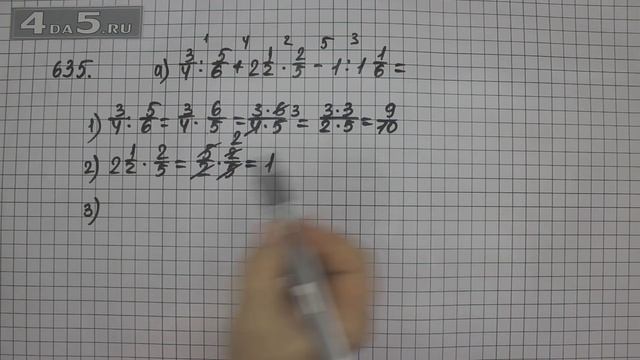 4DA5.RU
1 4 2 5 3
635. а) 3/4 : 5/6 + 2 1/2 · 2/5 - 1 : 1 1/6 =
1) 3/4 : 5/6 = 3/4 · 6/5 = 3·6/4·5 3 = 3·3/2·5 = 9/10
2) 2 1/2 · 2/5 = 5/2 · 2/5 = 1
3)